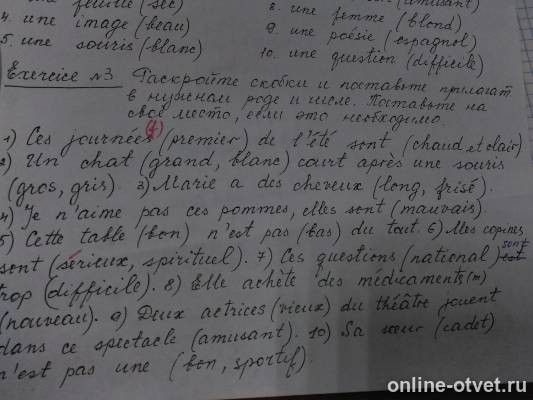 une feuille (sec)
4. une image (beau)
5. une souris (blanc)
(amusant)
8. une femme (blond)
9. une poésie (espagnol)
10. une question (difficile)
Exercice №3 Раскройте скобки и поставьте прилагат
в нужном роде и числе. Поставьте на
своё место, если это необходимо.
1) Ces journées (f) (premier) de l'été sont (chaud et clair)
2) Un chat (grand, blanc) court après une souris
(gros, gris). 3) Marie a des cheveux (long, frisé).
4) Je n'aime pas ces pommes, elles sont (mauvais).
5) Cette table (bon) n'est pas (bas) du tout. 6) Mes copines
sont (sérieux, spirituel). 7) Ces questions (national) sont
trop (difficile). 8) Elle achète des médicaments (m)
(nouveau). 9) Deux actrices (vieux) du théâtre jouent
dans ce spectacle (amusant). 10) Sa sœur (cadet)
n'est pas une (bon, sportif).
online-otvet.ru